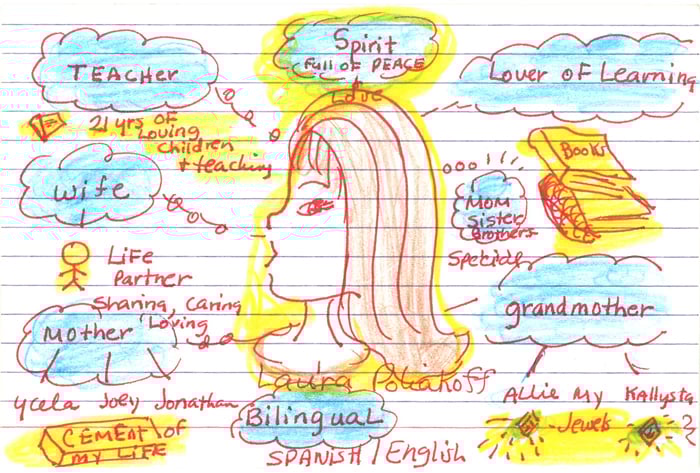 Spirit
Full of PEACE
Love
TEACHER
21 yrs of
Loving
children
+ teaching
Lover of Learning
Books
wife
LiFe
Partner
Sharing, Caring
Loving
MOM
Sister
Brothers
Special
Mother
Ycela Joey Jonathan
CEMENT of
my LIFE
grandmother
ALLie My Kallysta
Jewels
Laura Poliakoff
BiLinguaL
SPANISH / English